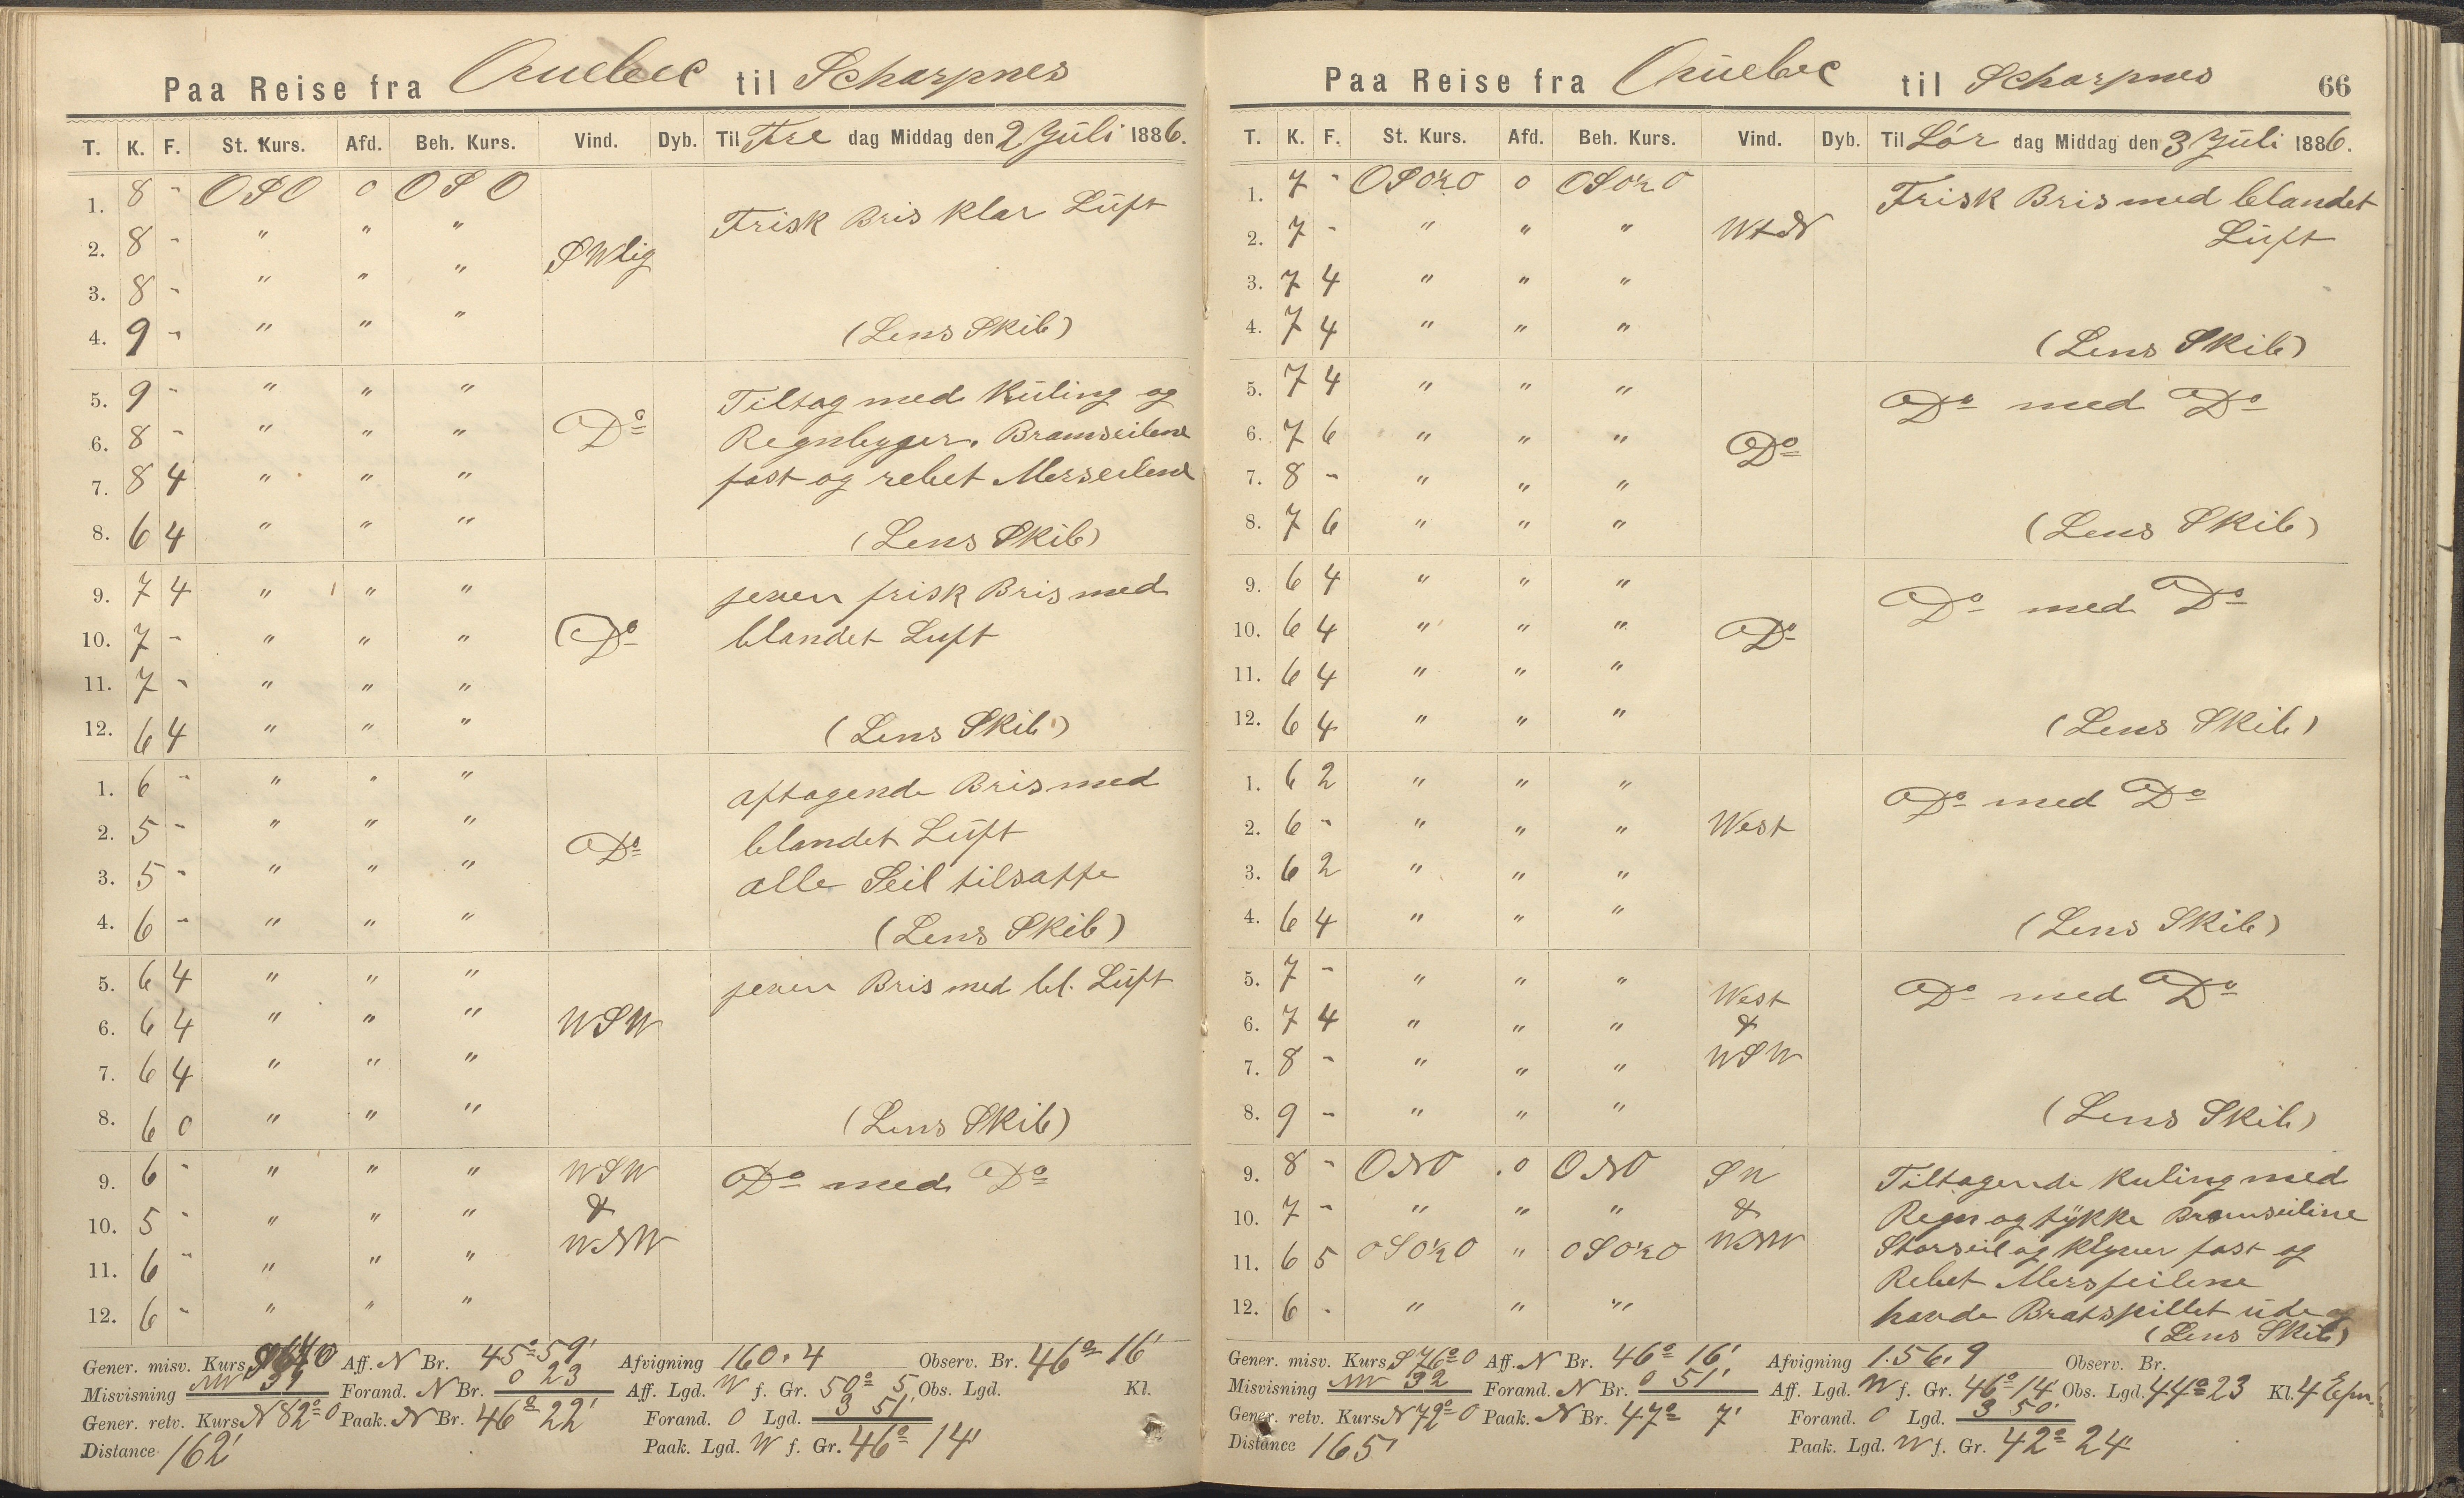 Paa Reise fra Quebec til Scharpnes
T. K. F. St. Kurs. Afd. Beh. Kurs. Vind. Dyb. Til Fre dag Middag den 2 Juli 1886.
1. 8 - OSO 0 OSO Frisk Bris klar Luft
2. 8 - " " " SWlig
3. 8 - " " "
4. 9 - " " " (Lens Skib)
5. 9 - " " " Tiltag med Kuling og
6. 8 - " " " Do Regnbyger. Bramseilene
7. 8 4 " " " fast og rebet Merseilene
8. 6 4 " " " (Lens Skib)
9. 7 4 " " " jevn frisk Bris med
10. 7 - " " " Do blandet Luft
11. 7 - " " "
12. 6 4 " " " (Lens Skib)
1. 6 - " " " aftagende Bris med
2. 5 - " " " Do blandet Luft
3. 5 - " " " alle Seil tilsatte
4. 6 - " " " (Lens Skib)
5. 6 4 " " " jevn Bris med bl. Luft
6. 6 4 " " " WSW
7. 6 4 " " "
8. 6 0 " " " (Lens Skib)
9. 6 - " " " WSW Do med Do
10. 5 - " " " &
11. 6 - " " " WNW
12. 6 - " " "
Gener. misv. Kurs Aff. N Br. 45° 59' Afvigning 160.4 Observ. Br. 46° 16'
Misvisning NW Forand. N Br. 0 23 Aff. Lgd. W f. Gr. 50° 5 Obs. Lgd. Kl.
Gener. retv. Kurs N 82° O Paak. N Br. 46° 22' Forand. O Lgd. 3 51'
Distance 162' Paak. Lgd. W f. Gr. 46° 14'
Paa Reise fra Quebec til Scharpnes 66
T. K. F. St. Kurs. Afd. Beh. Kurs. Vind. Dyb. Til Lör dag Middag den 3 Juli 1886.
1. 7 - OSO½O 0 OSO½O Frisk Bris med blandet
2. 7 - " " " WtN Luft
3. 7 4 " " "
4. 7 4 " " " (Lens Skib)
5. 7 4 " " " Do med Do
6. 7 6 " " " Do
7. 8 - " " "
8. 7 6 " " " (Lens Skib)
9. 6 4 " " " Do med Do
10. 6 4 " " " Do
11. 6 4 " " "
12. 6 4 " " " (Lens Skib)
1. 6 2 " " " Do med Do
2. 6 - " " " West
3. 6 2 " " "
4. 6 4 " " " (Lens Skib)
5. 7 - " " " West Do med Do
6. 7 4 " " " &
7. 8 - " " " WSW
8. 9 - " " " (Lens Skib)
9. 8 - ONO 0 ONO SW Tiltagende Kuling med
10. 7 - " " " & Regn og tykke Bramseilene
11. 6 5 OSO½O " OSO½O WNW Storseil og Klyver fast og
Rebet Merseilene
12. 6 - " " " havde Bratspillet ude og
(Lens Skib)
Gener. misv. Kurs S 76° O Aff. N Br. 46° 16' Afvigning 1.56.9 Observ. Br.
Misvisning NW 32 Forand. N Br. 0 51' Aff. Lgd. W f. Gr. 46° 14' Obs. Lgd. 44° 23 Kl. 4
Gener. retv. Kurs N 72° O Paak. N Br. 47° 7' Forand. O Lgd. 3 50'
Distance 165' Paak. Lgd. W f. Gr. 42° 24